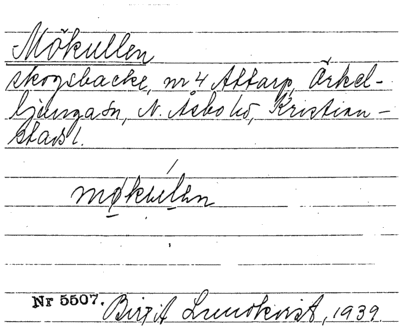 Mökullen
skogsbacke, nr 4 Attarp, Örkel-
ljunga sn, N. Åsbo hd, Kristian-
stads l.
møkulen
Nr 5507. Birgit Lundkvist, 1939